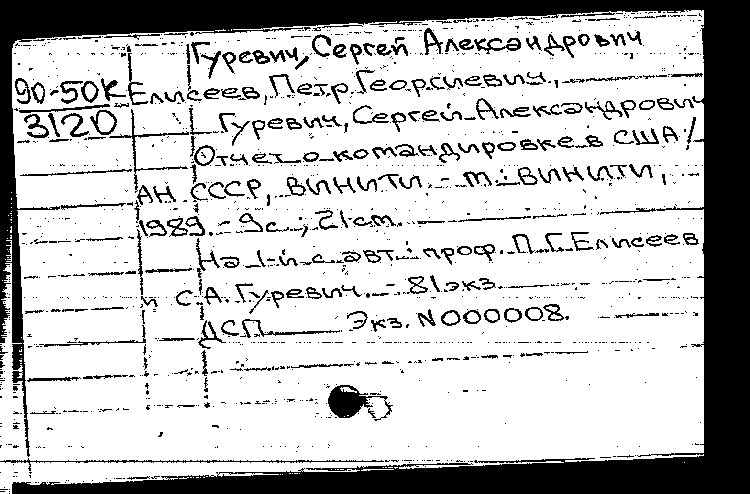 Гуревич, Сергей Александрович
90-50К Елисеев, Петр Георгиевич,
3120 Гуревич, Сергей Александрович
Отчет о командировке в США /
АН СССР, ВИНИТИ. - М.: ВИНИТИ,
1989. - 9с.; 21см.
На 1-й с. авт.: проф. П.Г. Елисеев
и С.А. Гуревич. - 81экз.
ДСП Экз. N000008.